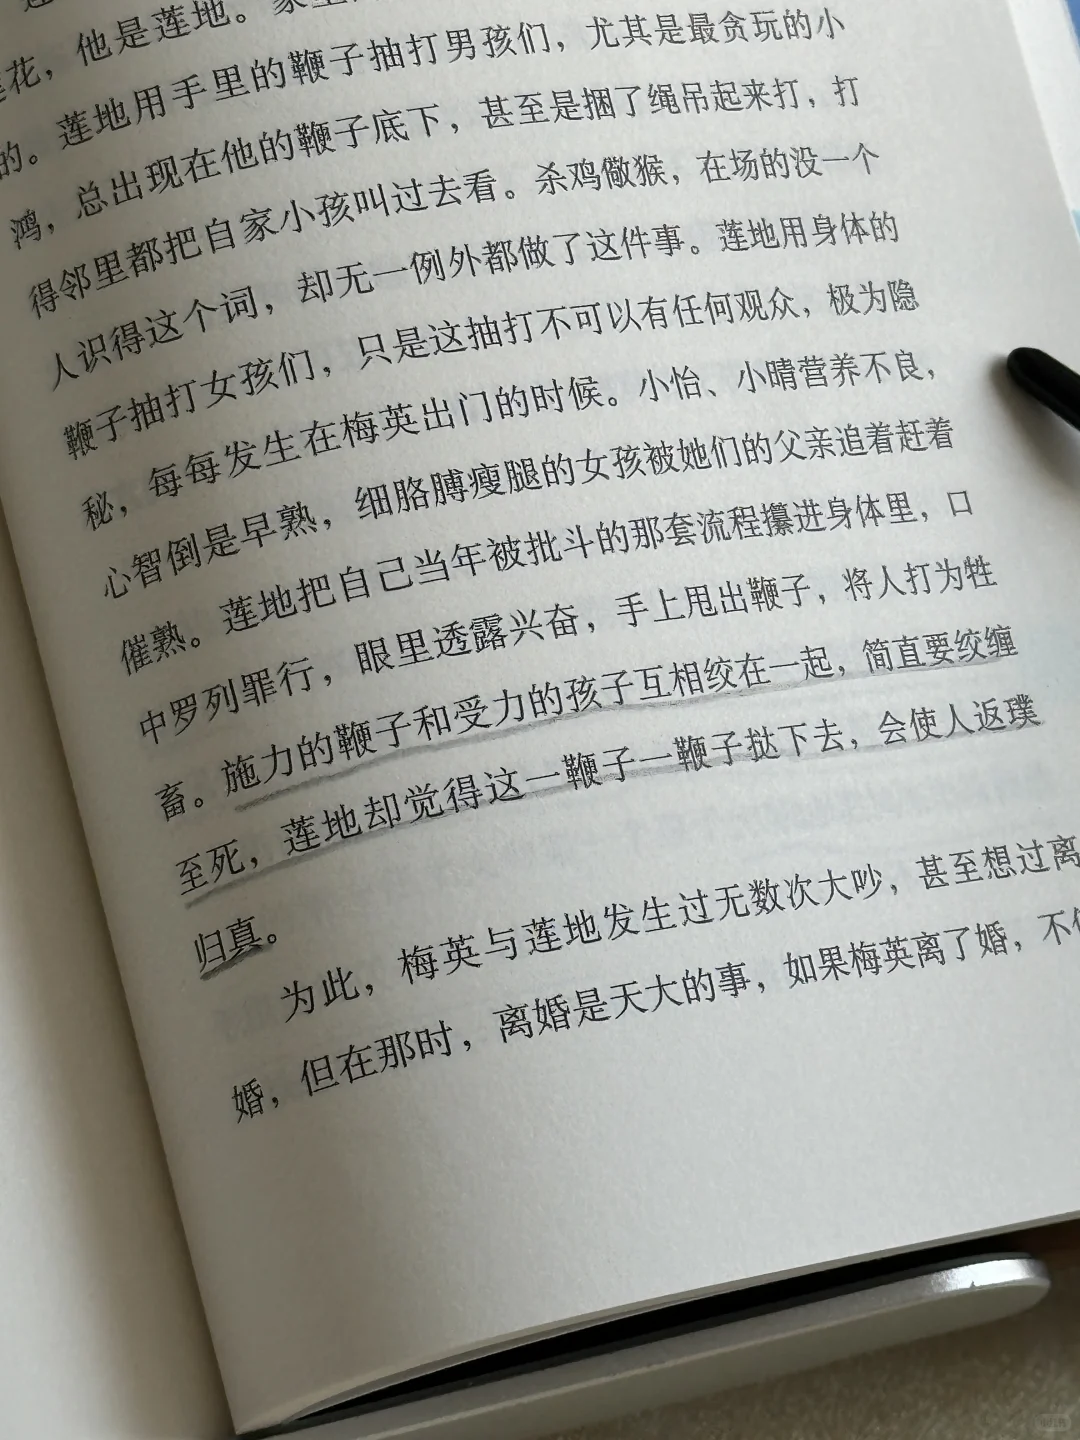 花，他是莲地。家里
的。莲地用手里的鞭子抽打男孩们，尤其是最贪玩的小
鸿，总出现在他的鞭子底下，甚至是捆了绳吊起来打，打
得邻里都把自家小孩叫过去看。杀鸡儆猴，在场的没一个
人识得这个词，却无一例外都做了这件事。莲地用身体的
鞭子抽打女孩们，只是这抽打不可以有任何观众，极为隐
秘，每每发生在梅英出门的时候。小怡、小晴营养不良，
心智倒是早熟，细胳膊瘦腿的女孩被她们的父亲追着赶着
催熟。莲地把自己当年被批斗的那套流程攥进身体里，口
中罗列罪行，眼里透露兴奋，手上甩出鞭子，将人打为牲
畜。施力的鞭子和受力的孩子互相绞在一起，简直要绞缠
至死，莲地却觉得这一鞭子一鞭子挞下去，会使人返璞
归真。
为此，梅英与莲地发生过无数次大吵，甚至想过离
婚，但在那时，离婚是天大的事，如果梅英离了婚，不